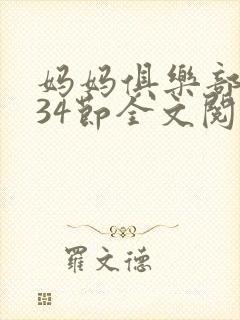 妈妈俱樂部
34節全文閱
羅文德